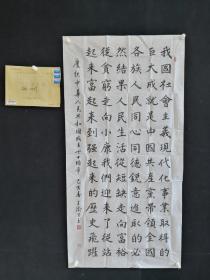 我國社會主義現代化事業取得的
巨大成就是中國共産黨帶領全國
各族人民同心同德銳意進取的必
然結果人民生活從短缺走向富裕
從貧窮走向小康我們迎來了從站
起來富起來到强起來的歷史飛躍
慶祝中華人民共和國成立七十周年